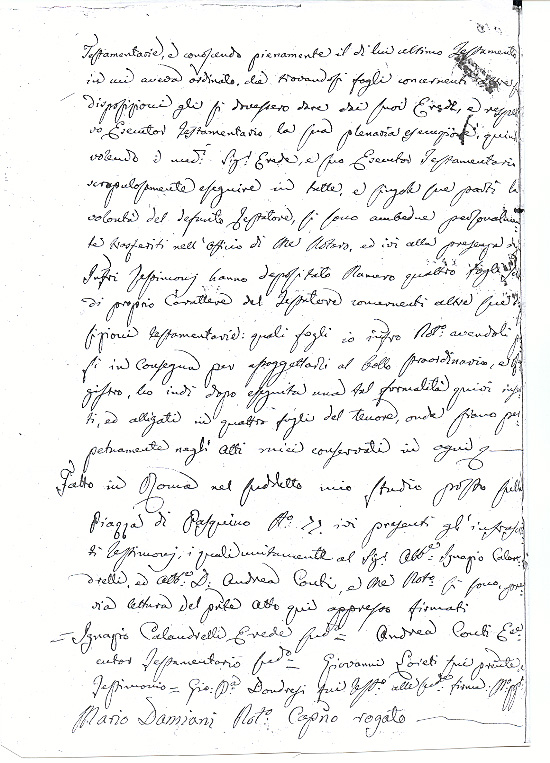 Testamentarie, e conoscendo pienamente il di lui ultimo Testamento
in cui aveva ordinato, che trovandosi fogli concernenti altre
disposizioni gli si dovessero dare dai suoi Eredi, e rispetti
vo Esecutor Testamentario la sua plenaria esecuzione, quin
volendo i med.i Sig.i Erede, e suo Esecutor Testamentario
scrupulosamente eseguire in tutte, e singole sue parti la
volontà del defunto Testatore, si sono ambedue personalmen
te trasferiti nell'Officio di Me Notaro, ed ivi alla presenza de
Infri Testimonj hanno depositato Numero quattro fogli
di proprio Carattere del Testatore concernenti altre sue di
sposizioni testamentarie: quali fogli io infro Not.o avendoli
in consegna per assoggettarli al bollo straordinario, e
gistro, ho indi dopo eseguita una tal formalità quivi inser
ti, ed alligati in quattro fogli del tenore, onde siano per
petuamente negl'Atti miei conservati in ogni
Fatto in Roma nel suddetto mio studio posto sulla
Piazza di Pasquino N.o 77 ivi presenti gl'infrascrit
ti Testimonj, i quali unitamente al Sig. Abb.e Ignazio Calan
drelli, ed Abb.e D. Andrea Conti, e Me Not.o si sono, pre
via lettura del pnte Atto qui appresso firmati
= Ignazio Calandrelli Erede sud.o = Andrea Conti Ese
cutor Testamentario sud.o = Giovanni Loreti fui presente
Testimonio = Gio. B.a Dondresi fui Test.o alle sud.e firme
Mario Damiani Not.o Capno rogato